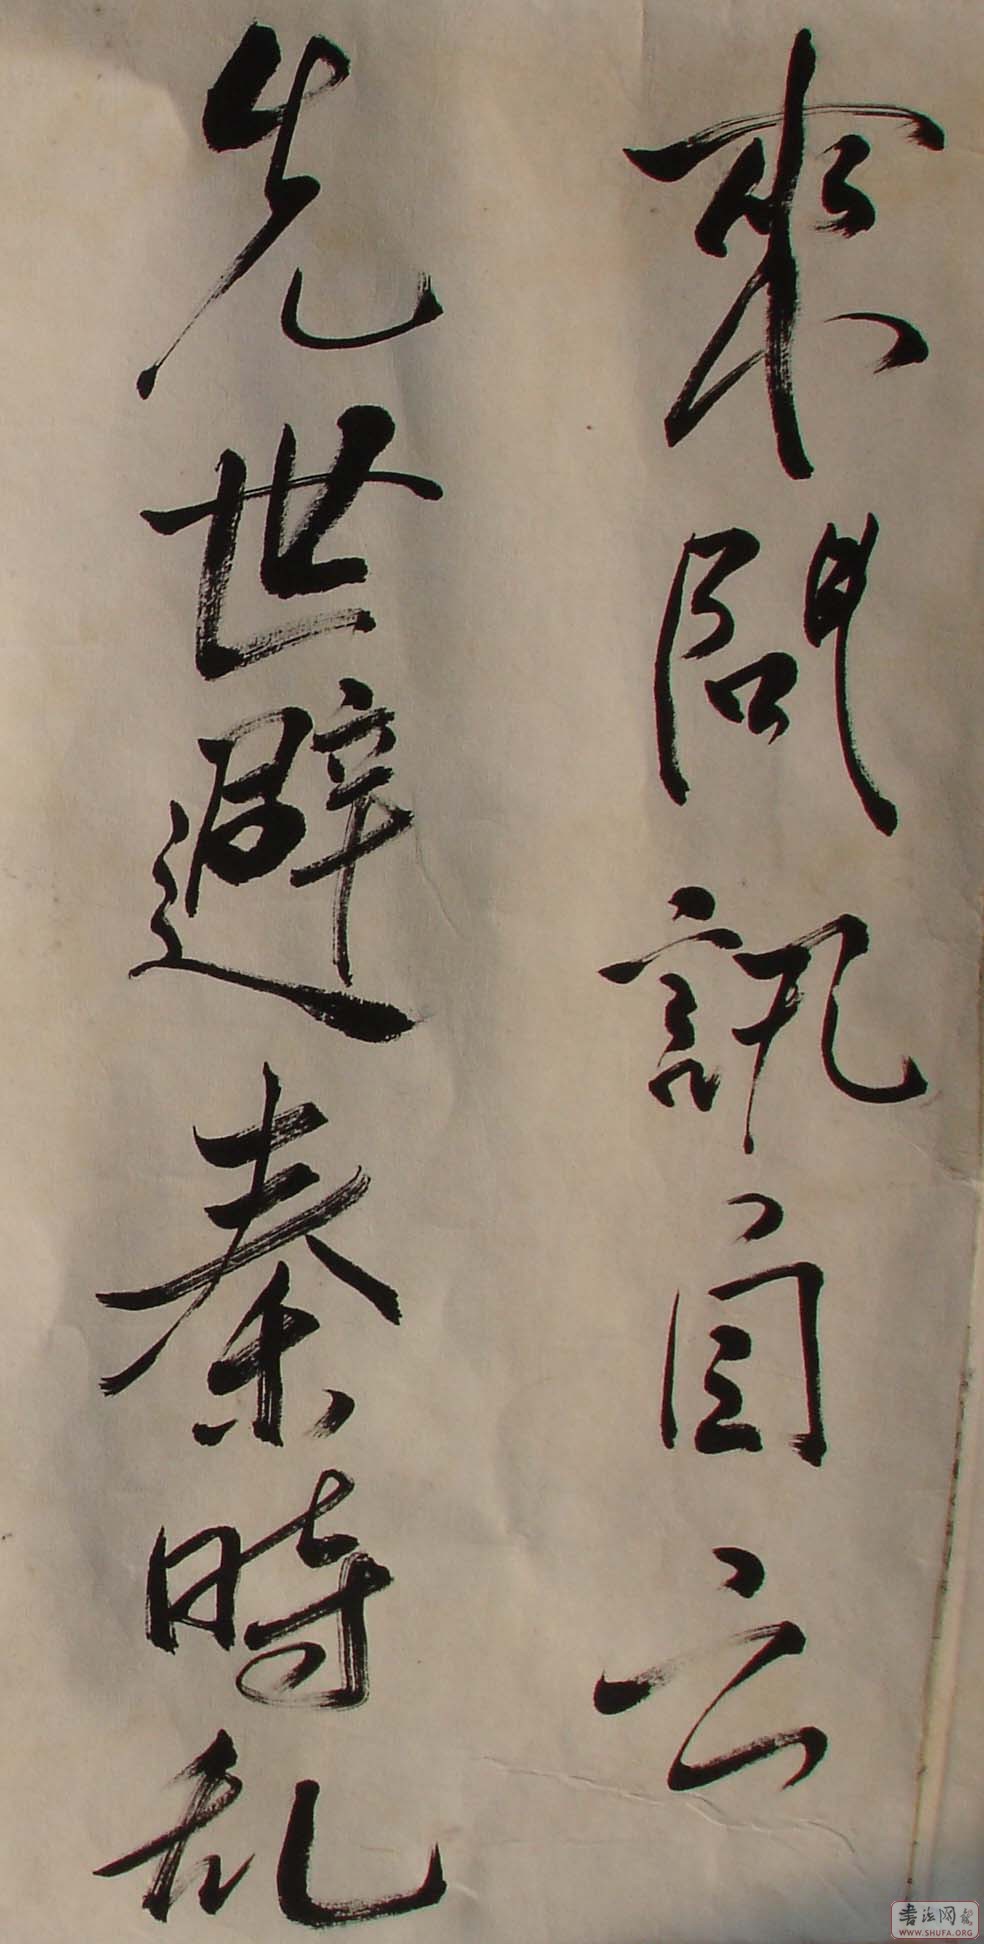 來問訊自云
先世避秦時乱
書法网
WWW.SHUFA.ORG